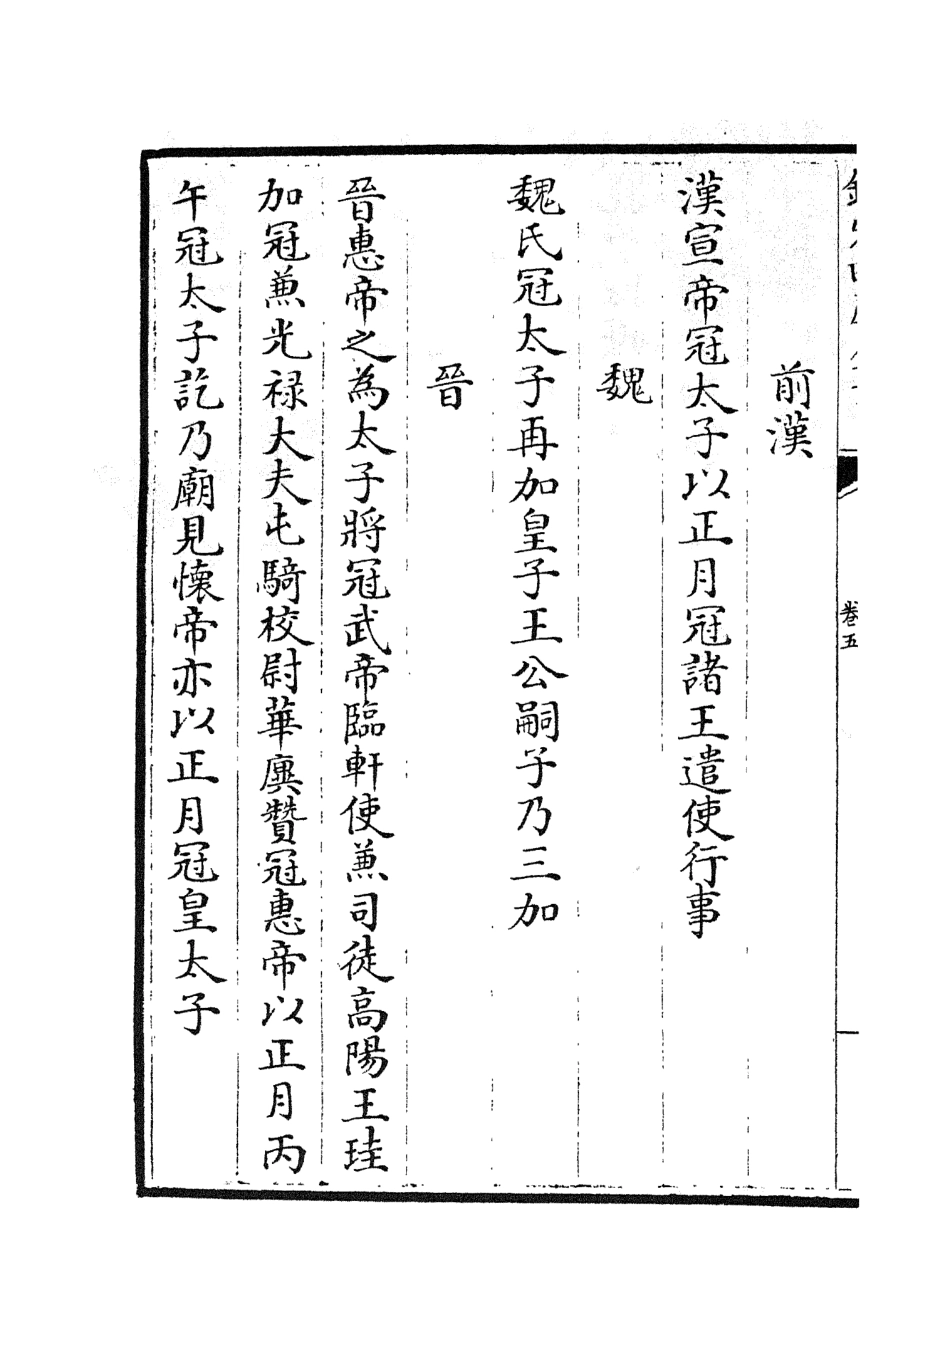 前漢
漢宣帝冠太子以正月冠諸王遣使行事
魏
魏氏冠太子再加皇子王公嗣子乃三加
晉
晉惠帝之為太子將冠武帝臨軒使兼司徒高陽王珪
加冠兼光禄大夫屯騎校尉華廙贊冠惠帝以正月丙
午冠太子訖乃廟見懷帝亦以正月冠皇太子
卷五